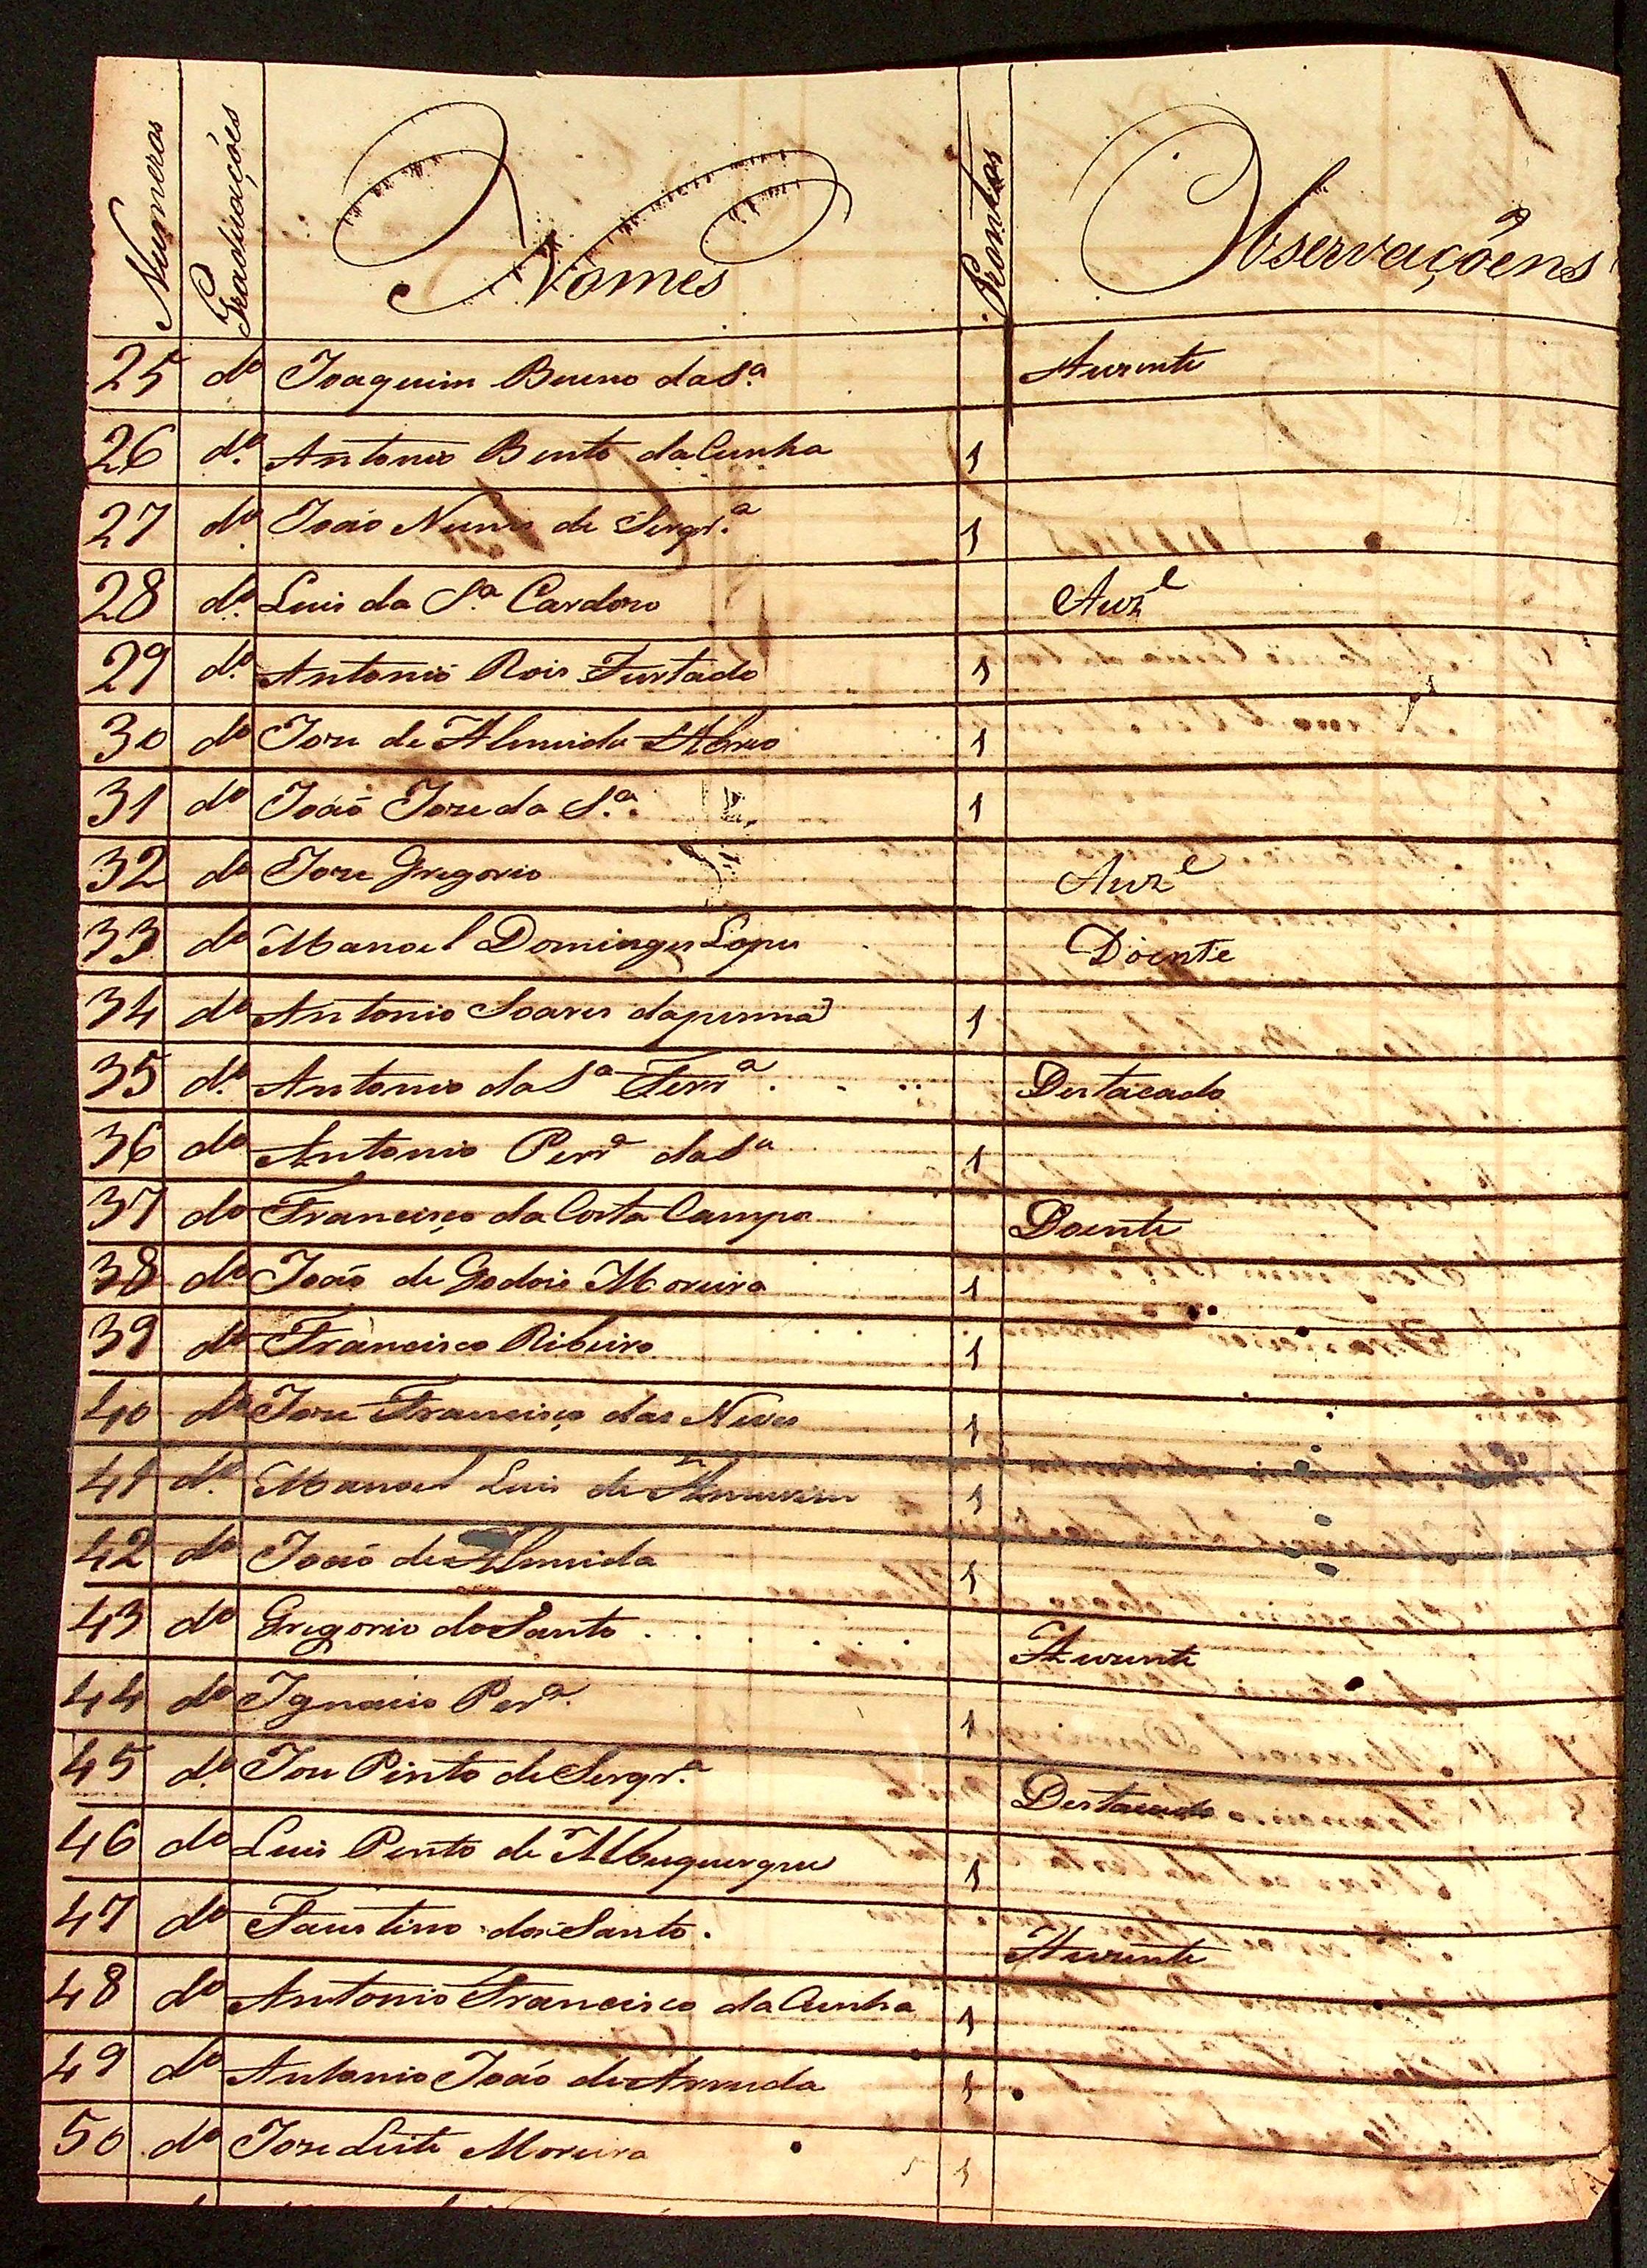 Numeros Graduaçóes Nomes Promtos Observaçôens
25 do Joaquim Bueno da Sa. Auzente
26 do. Antonio Bento da Cunha 1
27 do. João Nunes de Serqra. 1
28 do. Luis da Sa. Cardozo Auze
29 do. Antonio Rois Furtado 1
30 do Joze de Almeida Abreo 1
31 do João Joze da Sa. 1
32 do Joze Gregorio Auze
33 do Manoel Domingues Lopes Doente
34 do Antonio Soares da penna 1
35 do. Antonio da Sa Ferra. Destacado
36 do Antonio Perra da Sa 1
37 do Francisco da Costa Campos Doente
38 do João de Godois Moreira 1
39 do Francisco Ribeiro 1
40 do Joze Francisco das Neves 1
41 do. Manoel Luis de 1
42 do João de Almeida 1
43 do Gregorio dos Santos Auzente
44 do Ignacio Pera. 1
45 do. Joze Pinto de Serqra. Destacado
46 do Luis Pinto de Albuquerque 1
47 do Faustino dos Santos. Auzente
48 do Antonio Francisco da Cunha 1
49 do Antonio João de Arruda 1
50 do Joze Leite Moreira 1